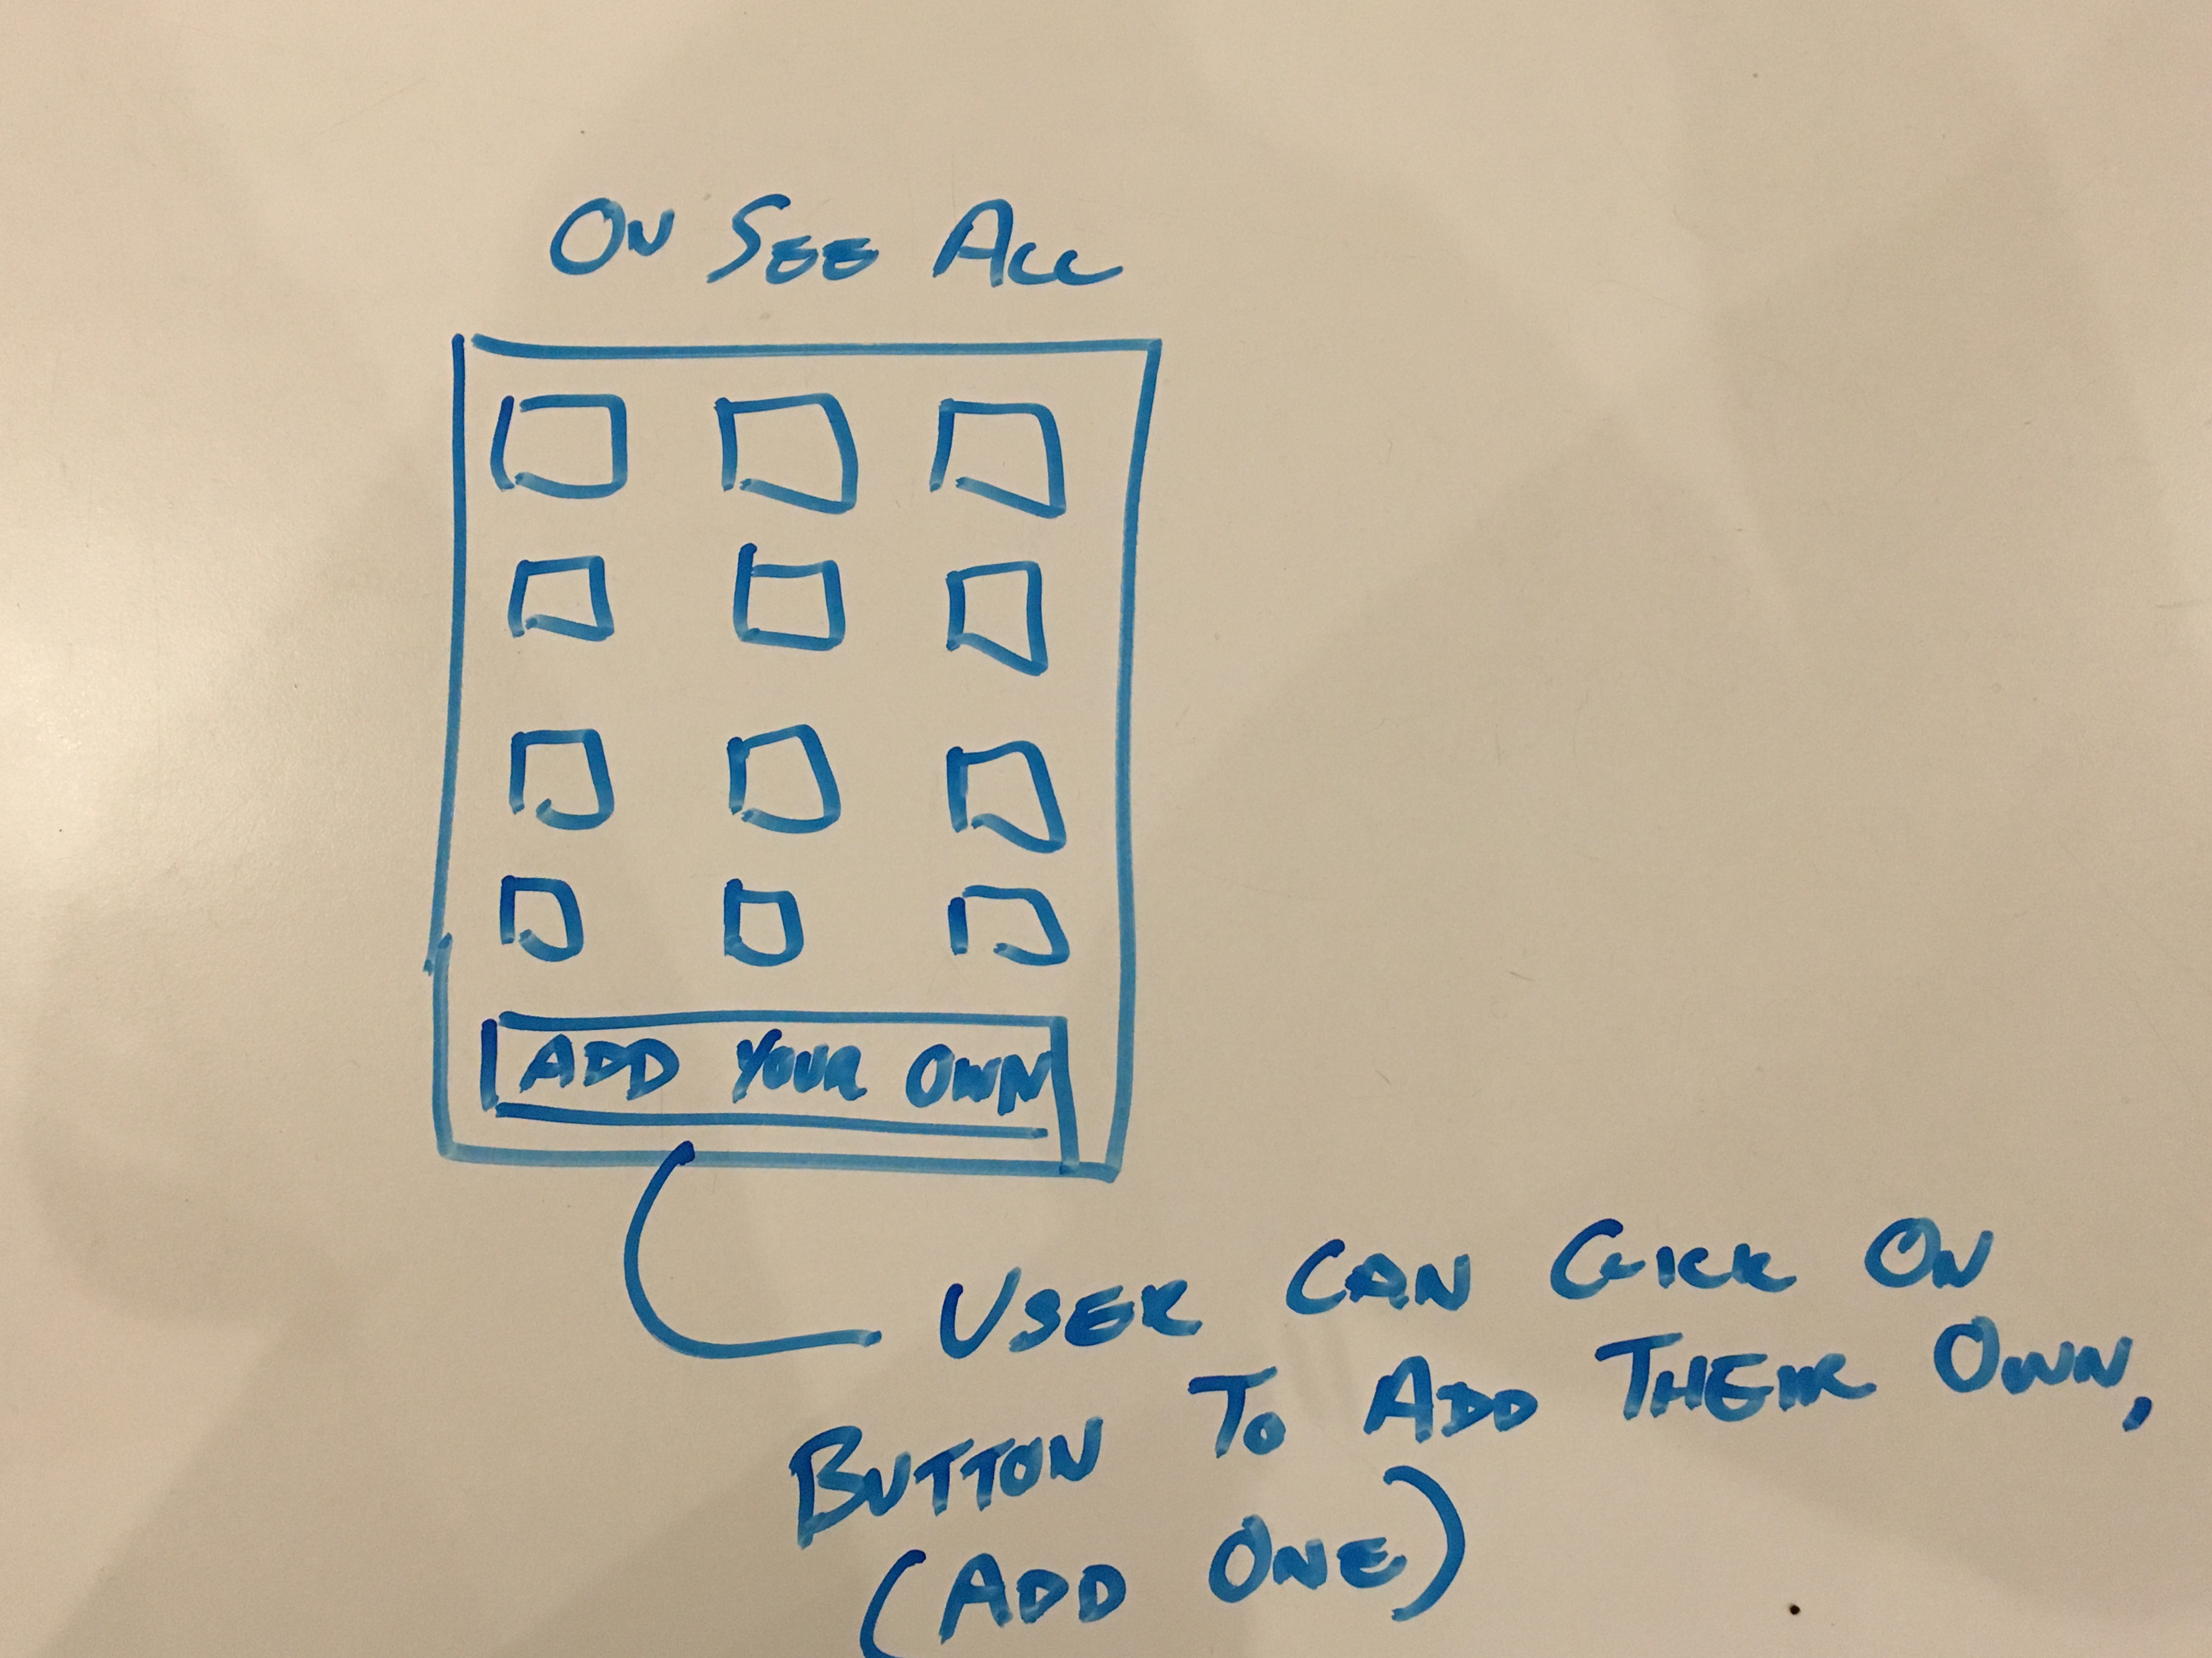 ON SEE ALL
ADD YOUR OWN
USER CAN CLICK ON
BUTTON TO ADD THEIR OWN,
(ADD ONE)